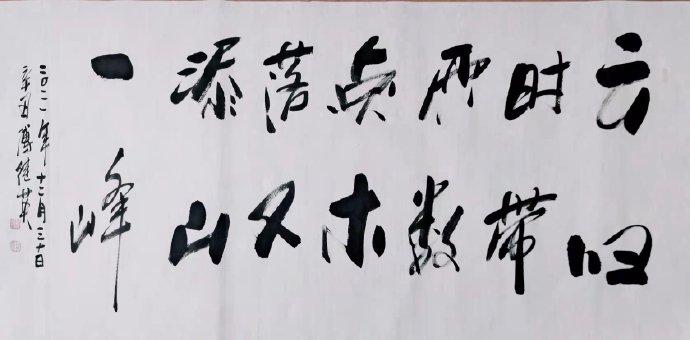 云归
时带
雨数
点木
落又
添山
一峰
二〇二一年十二月三十日
辛丑